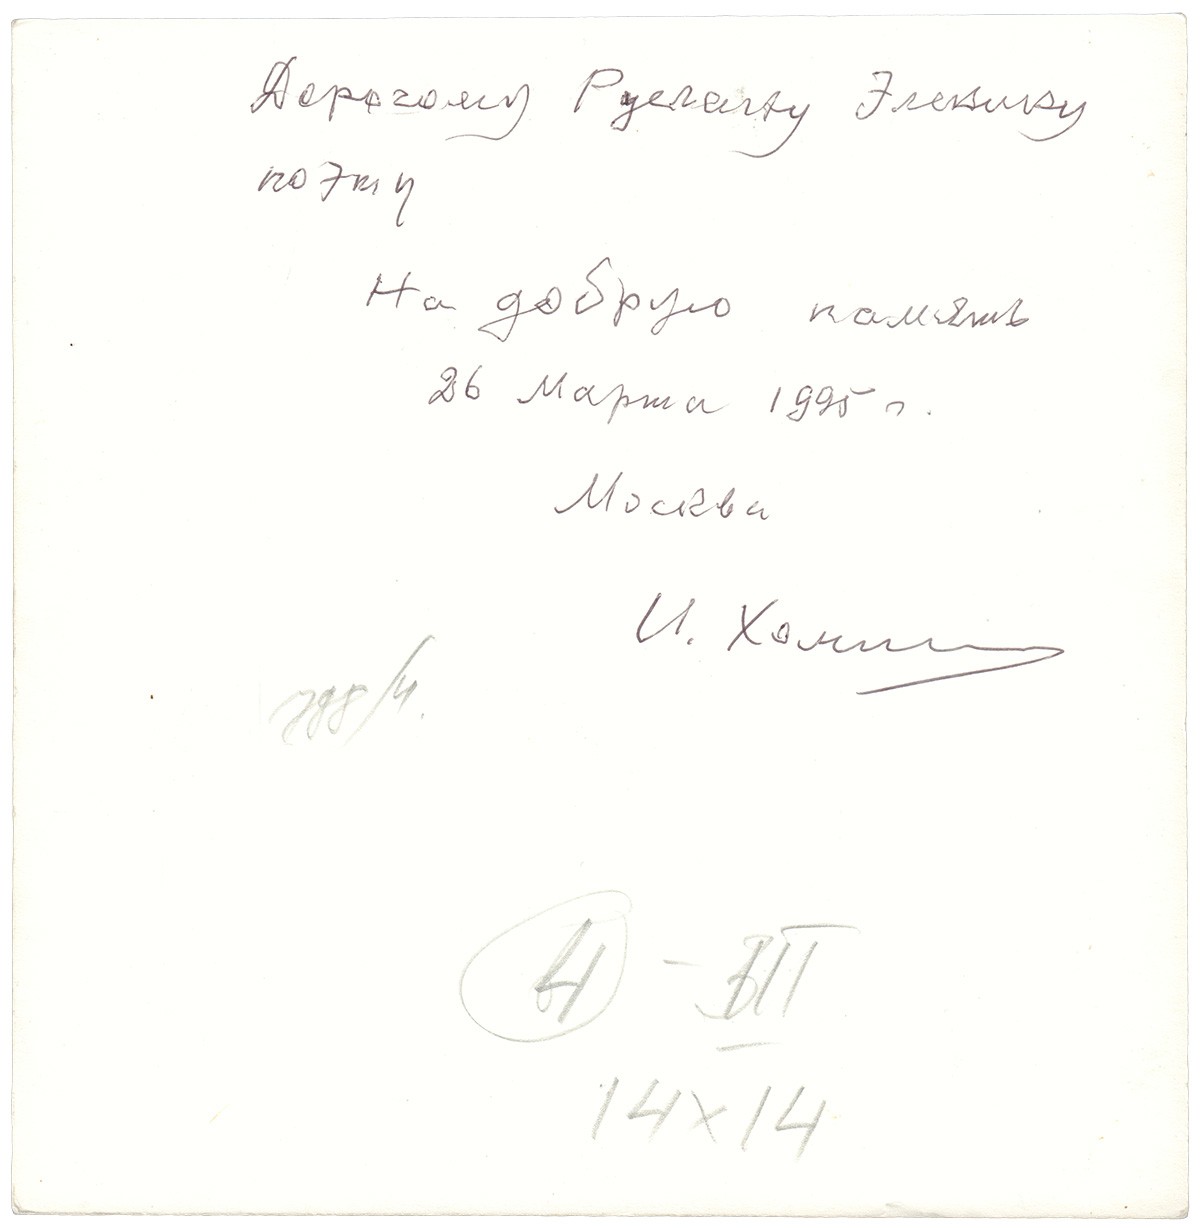 Дорогому Руслану Элинину
поэту
На добрую память
26 Марта 1995 г.
Москва
И. Холин
798/4.
4 - III
14x14